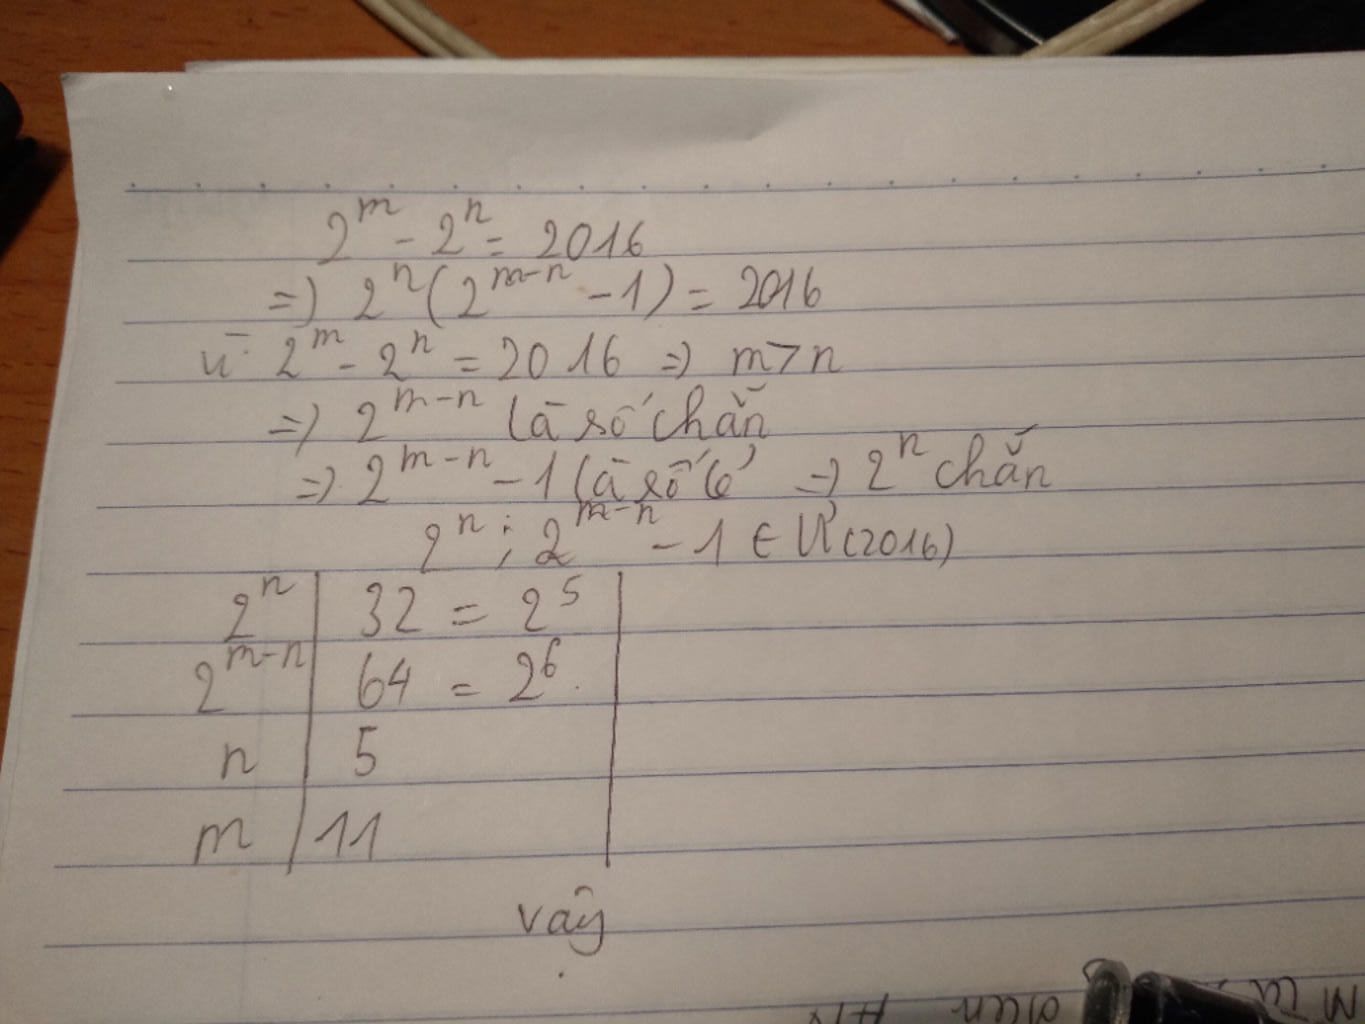 2^m - 2^n = 2016
=) 2^n (2^{m-n} - 1) = 2016
Vì 2^m - 2^n = 2016 => m > n
=) 2^{m-n} là số chẵn
=) 2^{m-n} - 1 là số lẻ => 2^n chẵn
2^n ; 2^{m-n} - 1 ∈ Ư(2016)
2^n | 32 = 2^5
2^{m-n} | 64 = 2^6.
n | 5
m | 11
vậy